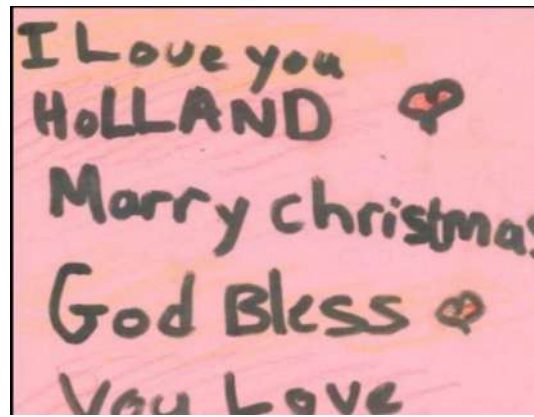 I Love you
HoLLAND
Marry christmas
God Bless
You Love